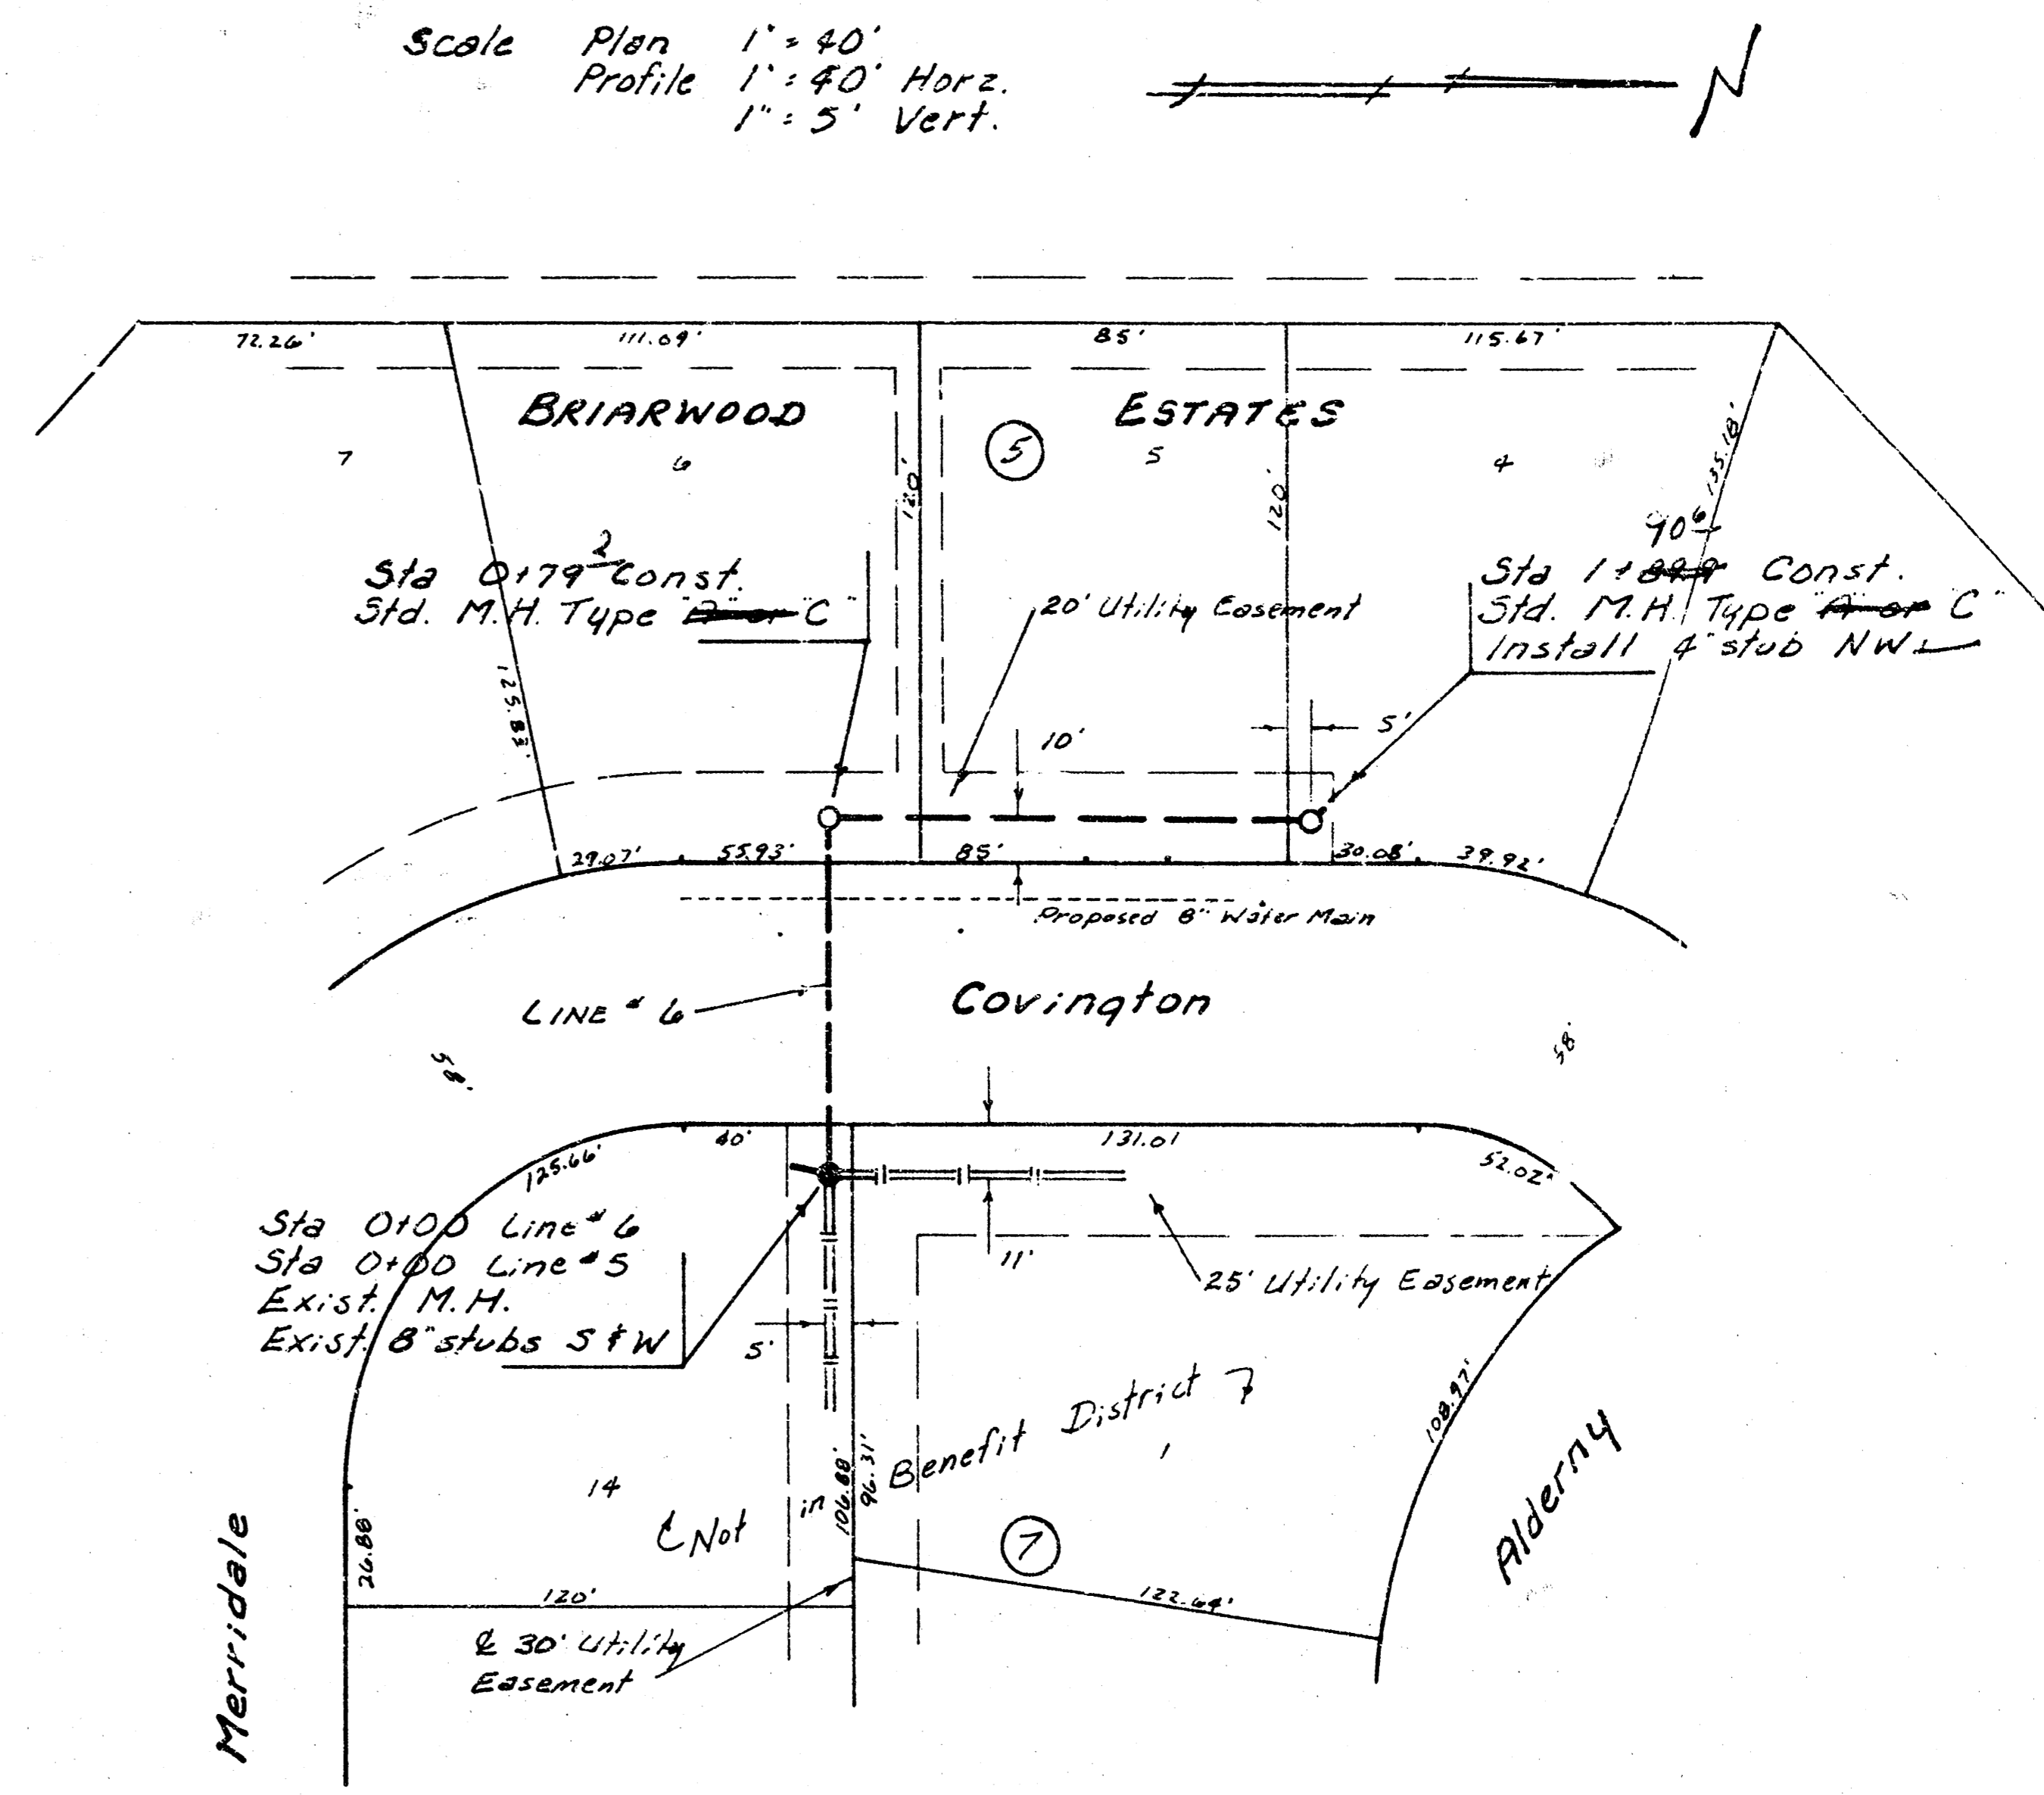 Scale Plan 1" = 40'
Profile 1" = 40' Horz.
1" = 5' Vert.
N
72.26'
111.09'
85'
115.67'
BRIARWOOD ESTATES
7
6
5
5
4
120'
120'
135.18'
125.83'
Sta 0+79 2 Const.
Std. M.H. Type "A" or "C"
20' Utility Easement
90 6
Sta 1+89.9 Const.
Std. M.H. Type "A" or "C"
Install 4" stub NW
10'
5'
29.07'
55.93'
85'
30.08'
39.92'
Proposed 8" Water Main
LINE # 6
Covington
58'
58'
40'
131.01
125.66'
52.02'
Sta 0+00 Line # 6
Sta 0+00 Line # 5
Exist. M.H.
Exist. 8" stubs S & W
11'
25' Utility Easement
5'
Not in Benefit District 7
1
14
106.88'
96.31'
108.97'
7
26.88'
120'
122.64'
℄ 30' Utility
Easement
Merridale
Alderny